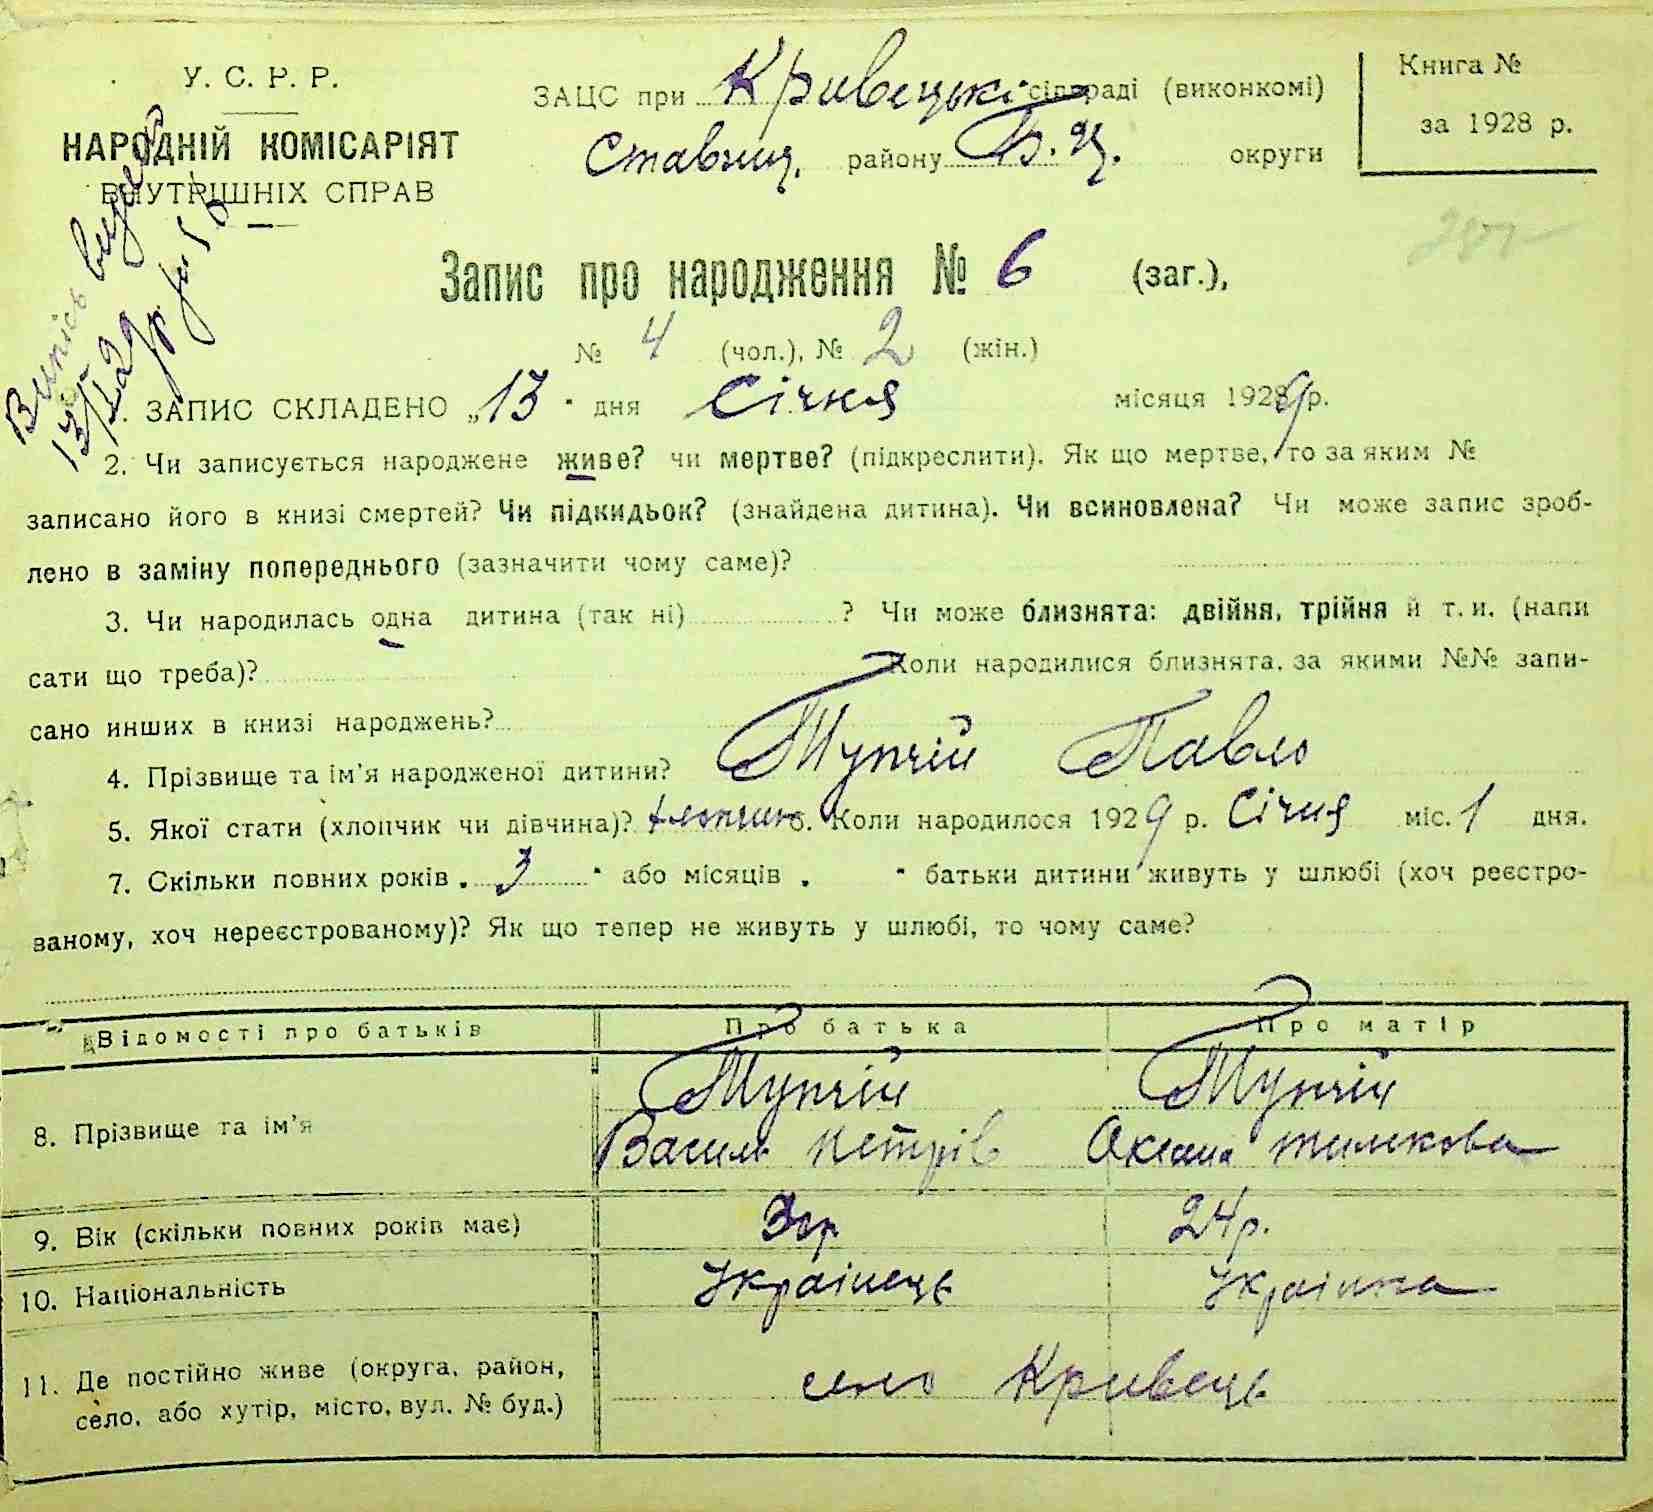 У. С. Р. Р.
НАРОДНІЙ КОМІСАРІЯТ
ВНУТРІШНІХ СПРАВ
ЗАЦС при Кривецькі сільраді (виконкомі)
Ставищ. району Б. Ц. округи
Книга №
за 1928 р.
Запис про народження № 6 (заг.),
№ 4 (чол.), № 2 (жін.)
1. ЗАПИС СКЛАДЕНО „13" дня Січня місяця 1929 р.
2. Чи записується народжене живе? чи мертве? (підкреслити). Як що мертве, то за яким №
записано його в книзі смертей? Чи підкидьок? (знайдена дитина). Чи всиновлена? Чи може запис зроб-
лено в заміну попереднього (зазначити чому саме)?
3. Чи народилась одна дитина (так ні) ? Чи може близнята: двійня, трійня й т. и. (напи
сати що треба)? Коли народилися близнята, за якими №№ запи-
сано инших в книзі народжень?
4. Прізвище та ім'я народженої дитини? Тупчій Павло
5. Якої стати (хлопчик чи дівчина)? хлопчик 6. Коли народилося 1929 р. Січня міс. 1 дня.
7. Скільки повних років „ 3 " або місяців „ " батьки дитини живуть у шлюбі (хоч реєстро-
ваному, хоч нереєстрованому)? Як що тепер не живуть у шлюбі, то чому саме?
Відомості про батьків Про батька Про матір
8. Прізвище та ім'я Тупчій Тупчій
Василь Петрів Оксана
9. Вік (скільки повних років має) 24р.
10. Національність Українець Українка
11. Де постійно живе (округа, район,
село, або хутір, місто, вул. № буд.) село Кривець
Випись